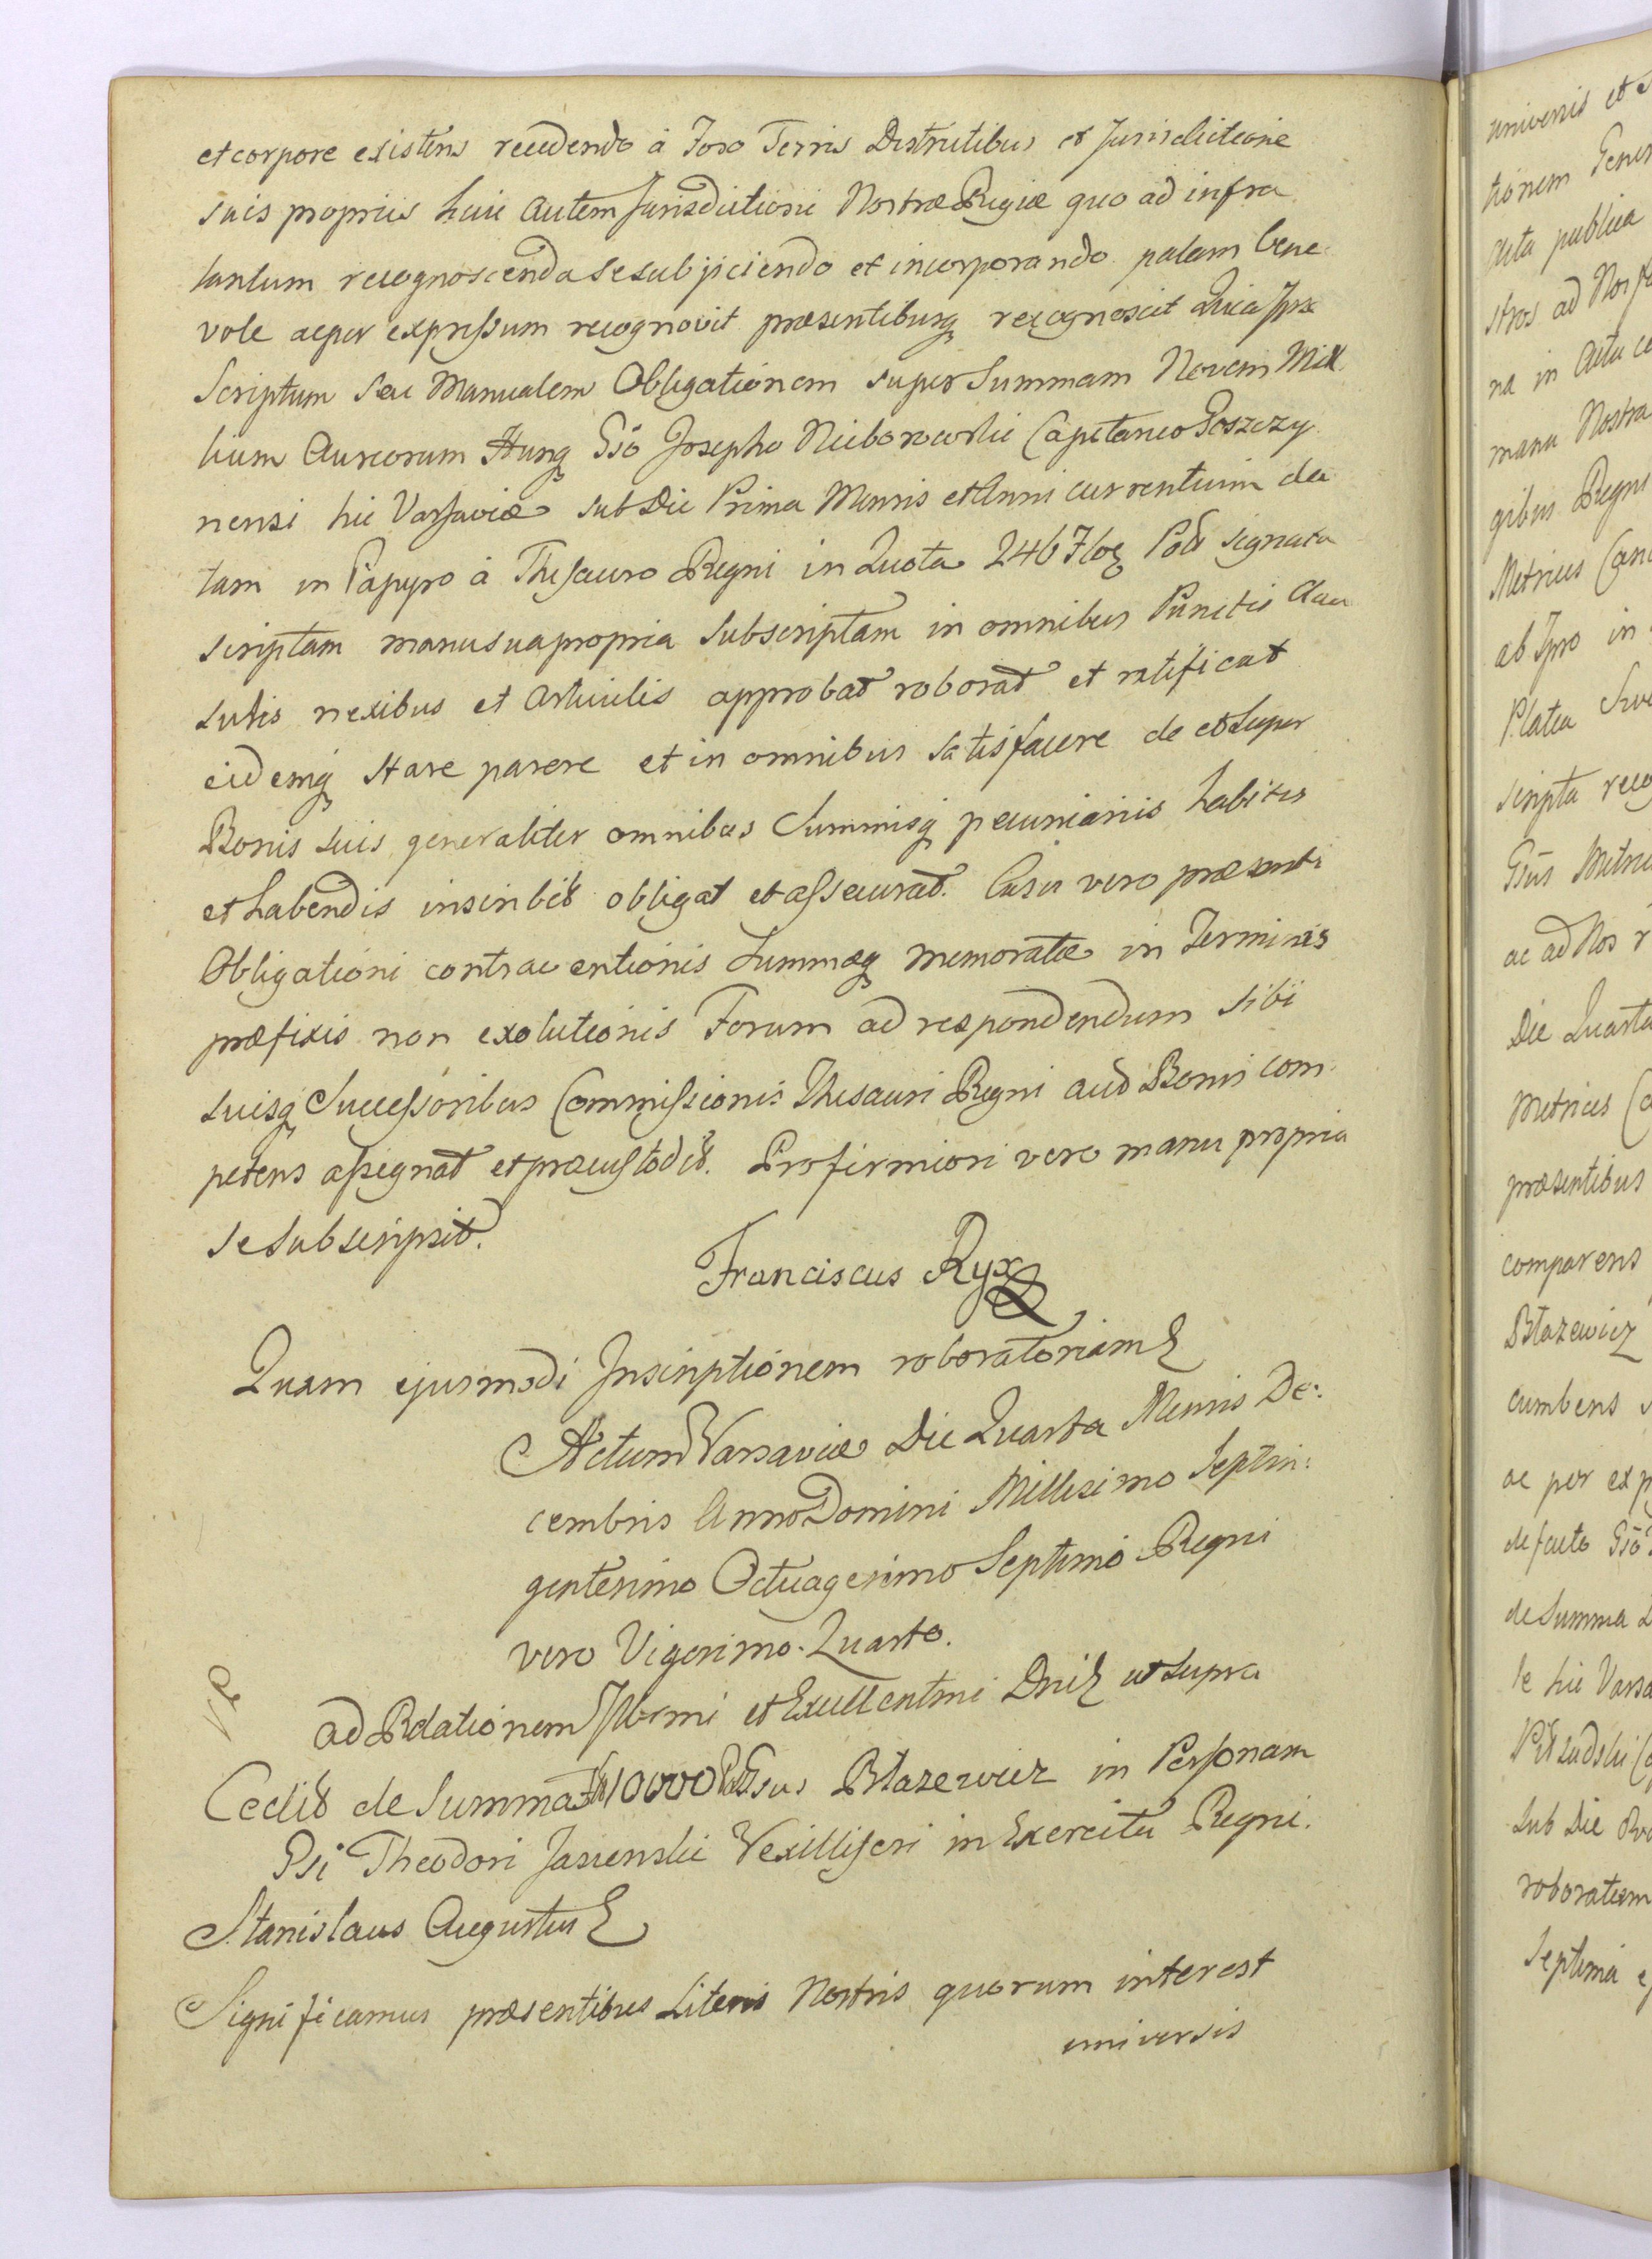 et corpore existens recedendo à Foro Terris Districtibus et Jurisdictione
suis propriis huic autem Jurisdictioni Nostræ Regiæ quo ad infra
tantum recognoscenda se subjiciendo et incorporando palam bene
vole ac per expressum recognovit præsentibusq recognoscit Quia Ipse
Scriptum seu Manualem Obligationem super Summam Novem Mil
lium Aureorum Hung Gso Josepho Nieborowski Capitaneo Goszczy
nensi hic Varsaviæ sub Die Prima Mensis et Anni currentium da
tam in Papyro à Thesauro Regni in Quota 246 Floę Pol signata
scriptam manu sua propria subscriptam in omnibus Punctis Clau
sulis nexibus et Articulis approbat roborat et ratificat
eidemq stare parere et in omnibus satisfacere de et super
Bonis suis generaliter omnibus Summisq pecuniariis habitis
et habendis inscribit obligat et assecurat. Casu vero præsenti
Obligationi contraventionis Summæq memoratæ in Terminis
præfixis non exolutionis Forum ad respondendum sibi
suisq Successoribus Commissionis Thesauri Regni aut Bonis com
petens assignat et præcustodit. Pro firmiori vero manu propria
se subscripsit.
Franciscus Ryx
Quam ejusmodi Inscriptionem roboratoriam
Actum Varsaviæ Die Quarta Mensis De:
cembris Anno Domini Millesimo Septin:
gentesimo Octuagesimo Septimo Regni
vero Vigesimo Quarto.
ad Relationem Illmi et Excellentmi Dni ut supra
Cedit de Summa 10000 Gsus Błazewicz in Personam
Gsi Theodori Jasienski Vexilliferi in Exercitu Regni.
Stanislaus Augustus
Significamus præsentibus Literis Nostris quorum interest
universis
universis et
tionem Gener
Acta publica
stros ad
na in Actu
manu Nostra
gibus Regni
Metrices
ab Ipso in
Platea
scripta
Gsus
ac ad Nos
Die Quarta
Metrices
præsentibus
comparens
Błazewicz
cumbens
ac per
de facto Gso
de Summa
le hic
sub Die
roboratam
Septima